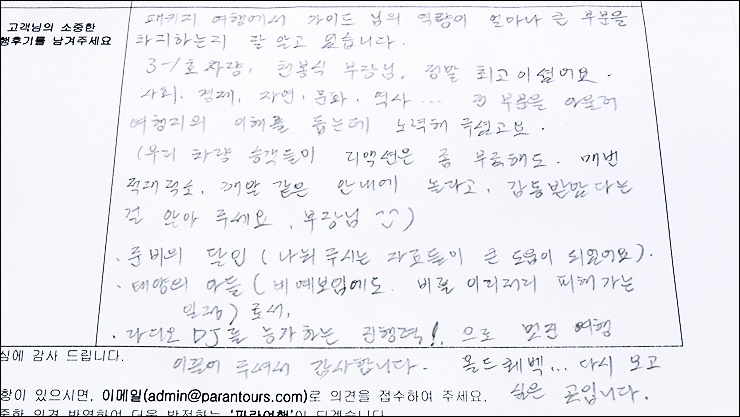 고객님의 소중한
행후기를 남겨주세요
패키지 여행에서 가이드 님의 역량이 얼마나 큰 부분을
차지하는지 잘 알고 있습니다.
3-1호차량, 천봉식 부장님, 정말 최고이셨어요.
사회·경제, 자연·문화·역사... 전 부분을 아울러
여행지의 이해를 돕는데 노력해 주셨고요.
(우리 차량 승객들이 리액션은 좀 부족해도. 매번
적재적소, 깨알 같은 안내에 놀라고, 감동받았다는
걸 알아 주세요. 부장님 ☺)
· 준비의 달인 (나눠 주시는 자료들이 큰 도움이 되었어요).
· 태양의 아들 (비예보임에도. 비를 이리저리 피해가는
일정)로서,
· 라디오 DJ를 능가하는 진행력!, 으로 멋진 여행
이끌어 주셔서 감사합니다. 올드퀘벡... 다시 오고
싶은 곳입니다.
심에 감사 드립니다.
항이 있으시면, 이메일(admin@parantours.com)로 의견을 접수하여 주세요.
중한 의견 반영하여 더욱 발전하는 '파란여행'이 되겠습니다.